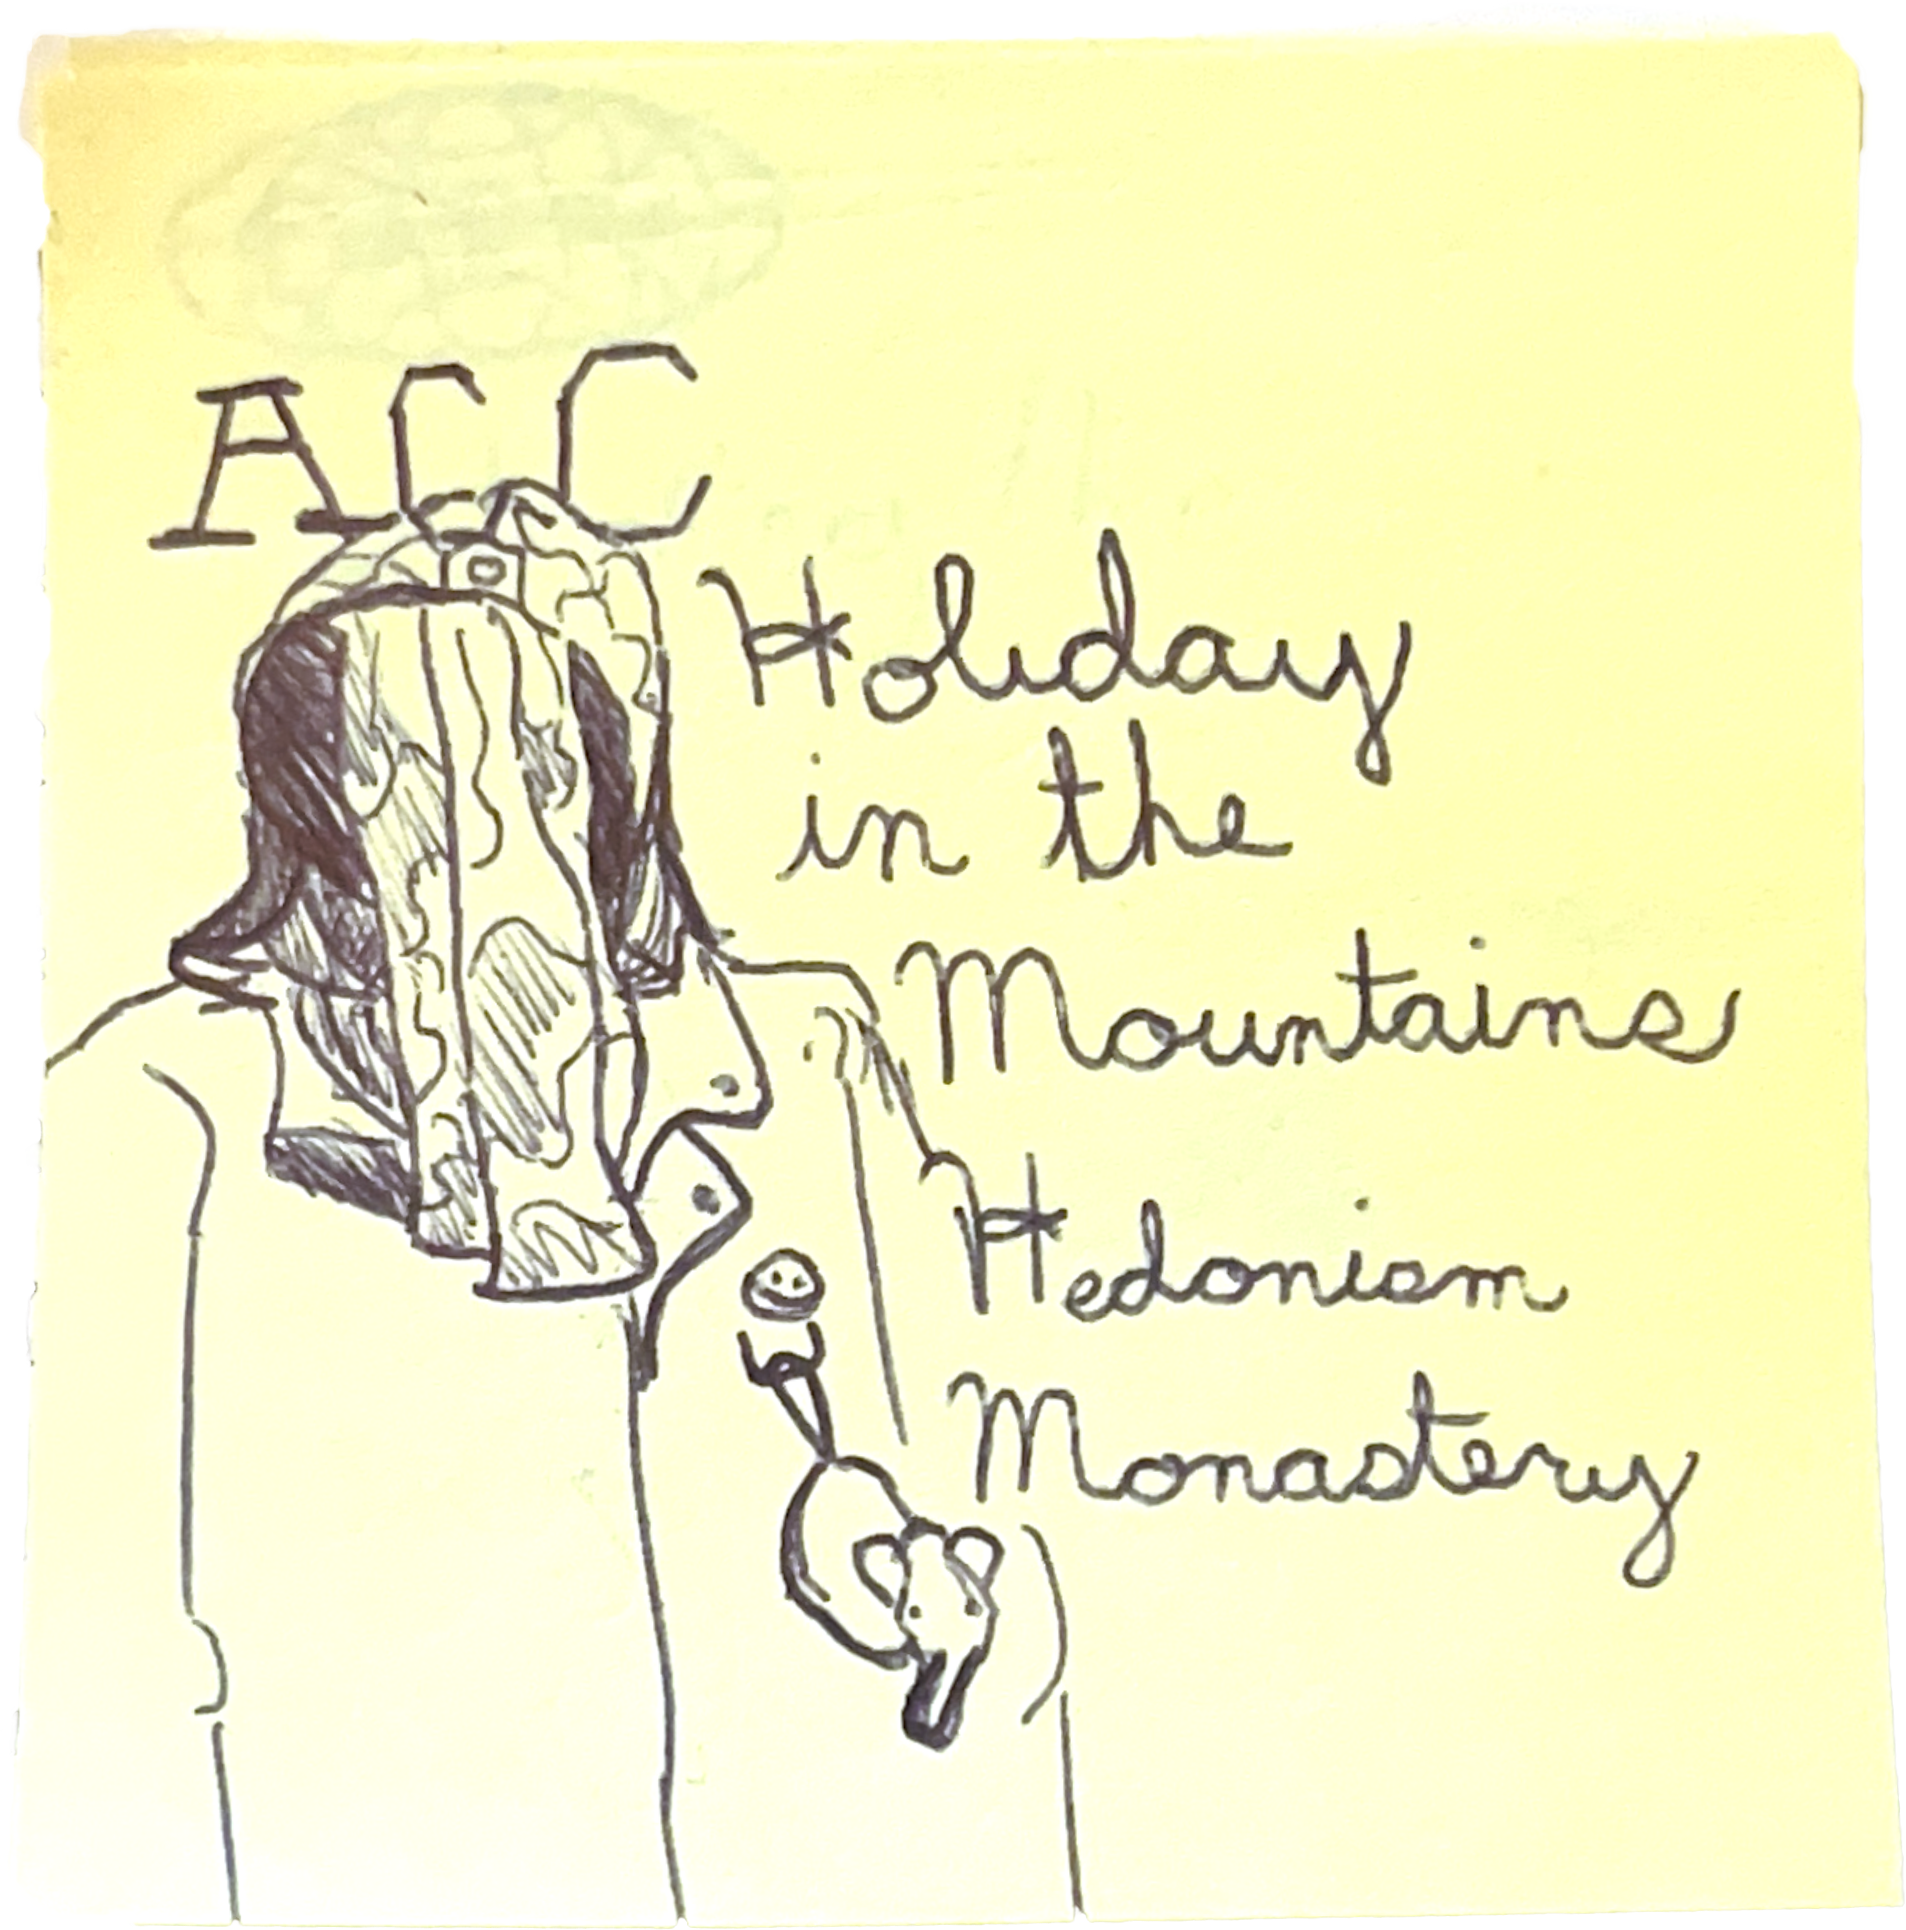 ACC
Holiday
in the
Mountains
Hedonism
Monastery